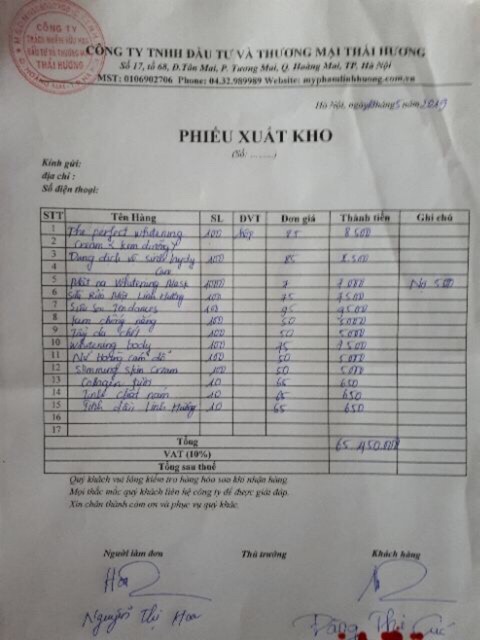 CÔNG TY
TRÁCH NHIỆM HỮU HẠN
ĐẦU TƯ VÀ THƯƠNG MẠI
THÁI HƯƠNG
CÔNG TY TNHH ĐẦU TƯ VÀ THƯƠNG MẠI THÁI HƯƠNG
Số 17, tổ 68, Đ.Tân Mai, P. Tương Mai, Q. Hoàng Mai, TP. Hà Nội
MST: 0106902706 Phone: 04.32.989989 Website: myphamlinhhuong.com.vn
Hà Nội, ngày tháng 5 năm 2019
PHIẾU XUẤT KHO
(Số: ........)
Kính gửi:
địa chỉ :
Số điện thoại:
STT Tên Hàng SL ĐVT Đơn giá Thành tiền Ghi chú
1 The perfect whitening 100 hộp 85 8.500
2 Cream - kem dưỡng
3 Dung dịch vệ sinh 100 85 8.500
4 Care
5 Mặt nạ Whitening Mask 1000 7 7.000 Nợ 500
6 Sữa Rửa Mặt Linh Hương 100 75 7500
7 100 95 9500
8 kem chống nắng 100 50 5000
9 Tẩy da chết 100 50 5000
10 Whitening body 100 75 7500
11 100 50 5000
12 Slimming skin cream 100 50 5000
13 Collagen 10 65 650
14 10 65 650
15 Tinh dầu Linh Hương 10 65 650
16
17
Tổng 65.450.000
VAT (10%)
Tổng sau thuế
Quý khách vui lòng kiểm tra hàng hóa sau khi nhận hàng.
Mọi thắc mắc quý khách liên hệ công ty để được giải đáp.
Xin chân thành cảm ơn và phục vụ quý khách.
Người làm đơn Thủ trưởng Khách hàng
Nguyễn Thị Hoa Đặng Thị Cúc